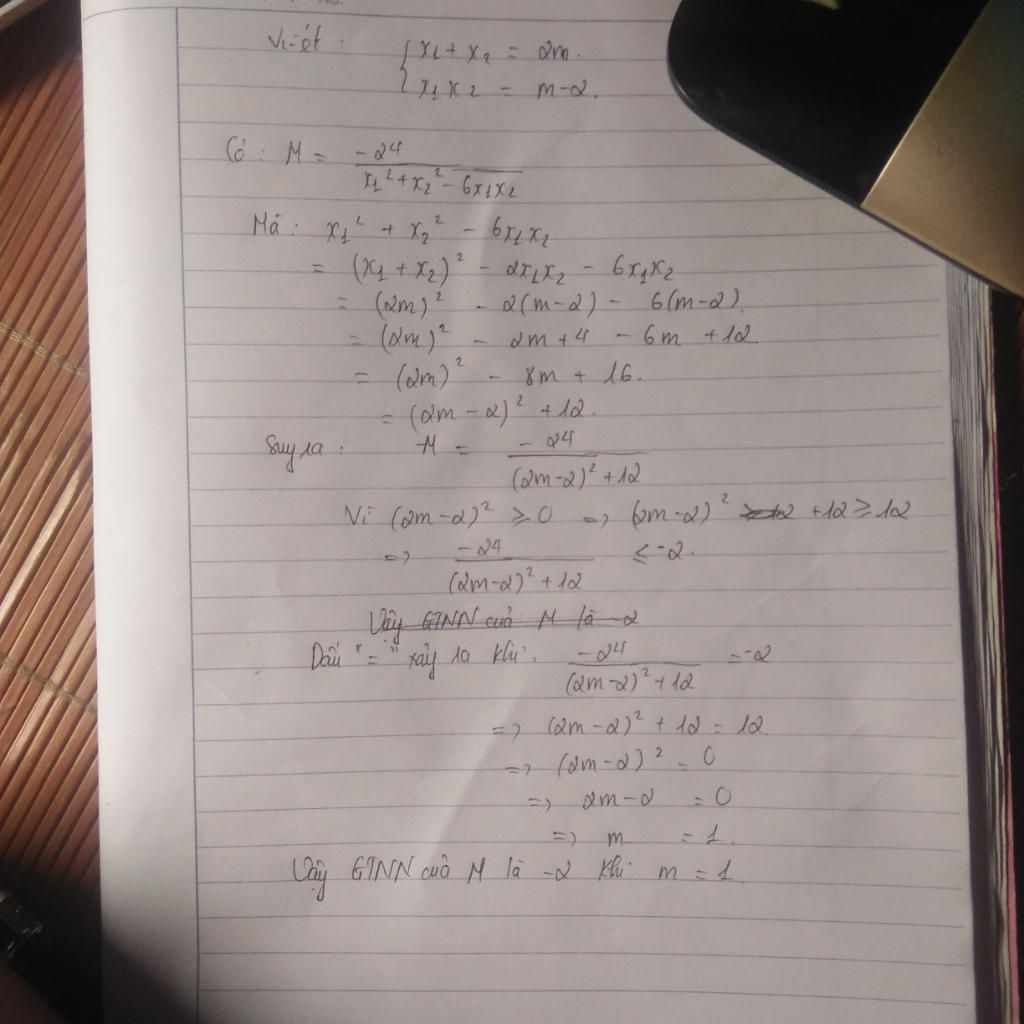 Vi-ét : { x₁ + x₂ = 2m.
x₁x₂ = m-2.
Có : M = -24 / (x₁² + x₂² - 6x₁x₂)
Mà : x₁² + x₂² - 6x₁x₂
= (x₁ + x₂)² - 2x₁x₂ - 6x₁x₂
= (2m)² - 2(m-2) - 6(m-2).
= (2m)² - 2m+4 - 6m +12
= (2m)² - 8m + 16.
= (2m-2)² +12.
Suy ra : M = -24 / ((2m-2)² +12)
Vì (2m-2)² ≥ 0 => (2m-2)² +12 ≥ 12
=> -24 / ((2m-2)² +12) ≤ -2.
Vậy GTNN của M là -2
Dấu "=" xảy ra khi. -24 / ((2m-2)² +12) = -2
=> (2m-2)² + 12 = 12.
=> (2m-2)² = 0
=> 2m-2 = 0
=> m = 1.
Vậy GTNN của M là -2 khi m = 1